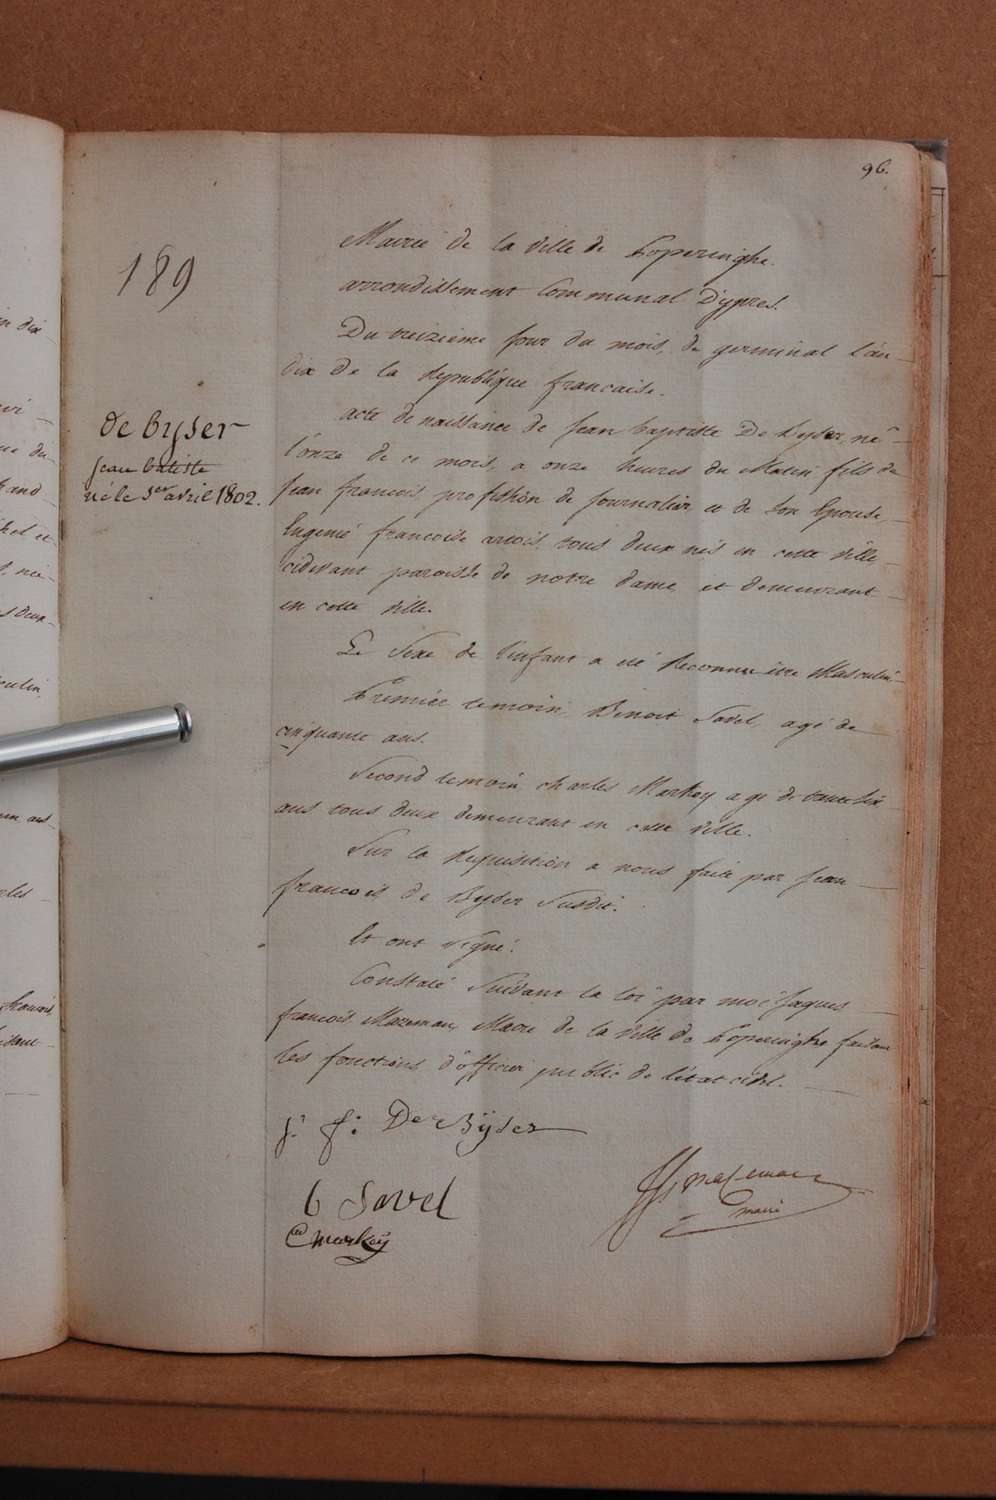 96.
189
de byser
jean batiste
né le 1er avril 1802.
Mairie de la ville de Poperinghe
arrondissement Communal D'ypres.
Du treizieme jour du mois de germinal l'an
dix de la Republique francaise.
acte de naissance de jean baptiste De byser, né
l'onze de ce mois, a onze heures du Matin fils de
jean francois profession de journalier et de son Epouse
Eugenie francoise artois tous deux nés en cette ville,
cidevant paroisse de notre dame et demeurant
en cette ville.
Le Sexe de l'enfant a été Reconnu être Masculin
Premier temoin, Benoit Sovel, agé de
cinquante ans.
Second temoin charles Markey agé de trente six
ans tous deux demeurant en cette ville.
Sur la Requisition a nous faite par jean
francois de Byser Susdit.
Et ont signé.
Constaté Suivant la loi par moi jaques
francois Mazeman, Maire de la ville de Poperinghe faisant
les fonctions d'officier public de l'état civil.
j: f: De Bÿser
b Sovel
C Markeÿ
JF mazeman
maire